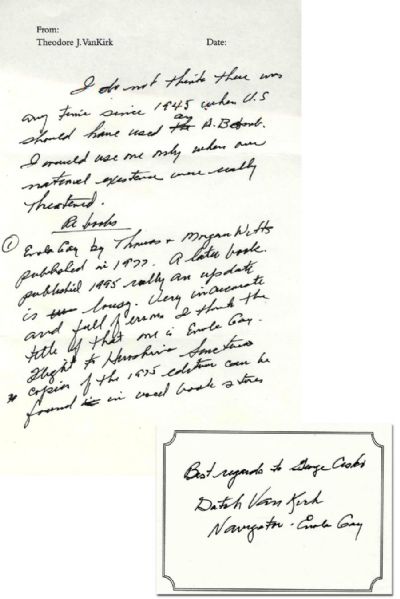 From:
Theodore J. VanKirk Date:
I do not think there was
any time since 1945 when U.S
should have used any A. Bomb.
I would use one only when our
national existence were really
threatened.
Re books
① Enola Gay by Thomas + Morgan Witts
published in 1977. A later book
published 1995 really an update
is lousy. Very inaccurate
and full of errors I think the
title of that one is Enola Gay.
Flight to Hiroshima Sometimes
copies of the 1975 edition can be
found in used book stores
Best regards to George
Dutch Van Kirk
Navigator - Enola Gay